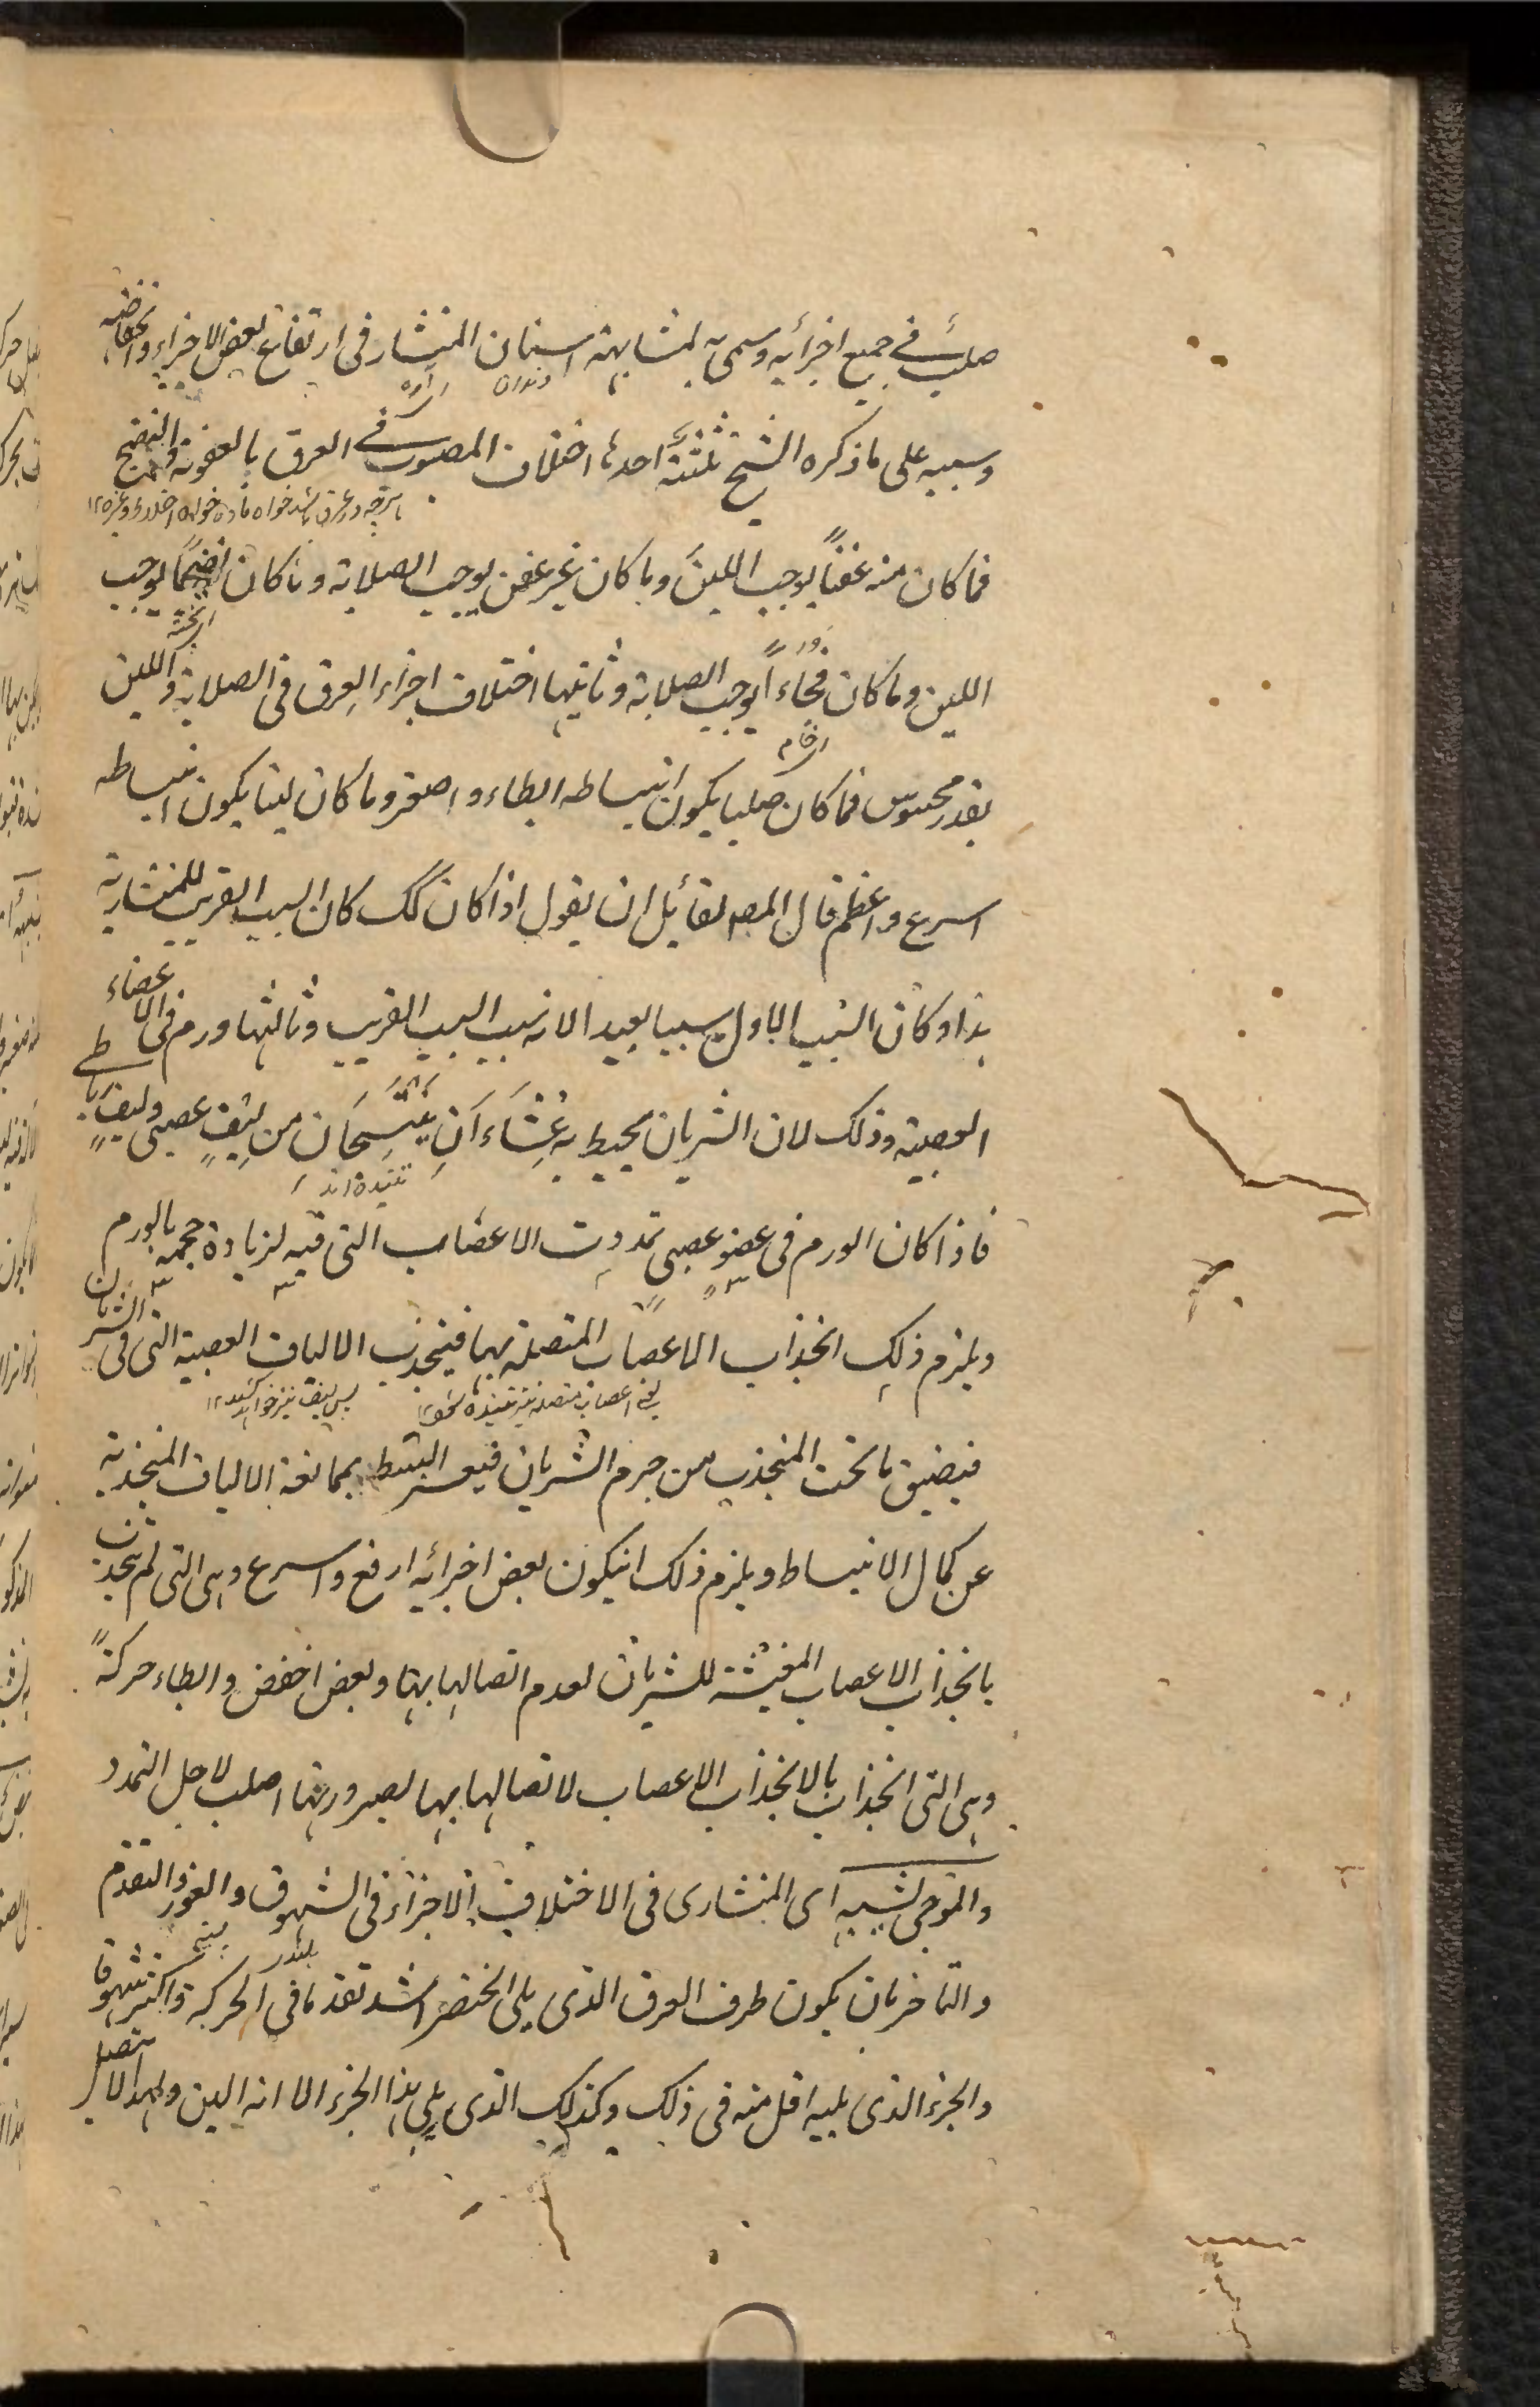 صلب في جميع اجزائه وسمى به لمشابهته اسنان المنشار فى ارتفاع بعض الاجزاء وانخفاضه
دندان
اره
وسببه على ما ذكره الشيخ ثلثة احدها اختلاف المصبوب في العرق بالعفونة والنضج
فما كان منه عفنًا يوجب اللين وما كان غير عفن يوجب الصلابة وما كان نضجًا يوجب
اللين وما كان فجاءً يوجب الصلابة وثانيها اختلاف اجزاء العرق فى الصلابة واللين
بقدر محسوس فما كان صلبا يكون انبساطه ابطاء واصغر وما كان لينا يكون انبساطه
اسرع واعظم قال المص لقائل ان يقول اذا كان كك كان السبب القريب للمنشارية
هذا وكان السبب الاول سببا بعيدا لانه سبب السبب القريب وثالثها ورم فى الاعضاء
العصبية وذلك لان الشريان يحيط به غشاءان ينتسجان من ليف عصبى وليف رباطي
تنيده اند
فاذا كان الورم فى عضو عصبى تمددت الاعصاب التى فيه لزيادة حجمه بالورم
ويلزم ذلك انجذاب الاعصاب المتصلة بها فينجذب الالياف العصبية التى فى الشريان
يعنى اعصاب متصله نيز تنيده شود ١٢
پس ليف نيز خواهد كشيد ١٢
فيضيق ما تحت المنجذب من جرم الشريان فيعسر البسط بممانعة الالياف المنجذبة
عن كمال الانبساط ويلزم ذلك انيكون بعض اجزائه ارفع واسرع وهى التى لم تنجذب
بانجذاب الاعصاب المغشية للشريان لعدم اتصالها بها وبعض اخفض وابطاء حركةً
وهى التى انجذاب بالانجذاب الاعصاب لاتصالها بها لصيرورتها اصلب لاجل التمدد
والموجى لشبيه اى المنشارى فى الاختلاف الاجزاء فى الشهوق والغور والتقدم
والتاخر بان يكون طرف العرق الذى يلى الخنصر اشد تقدما فى الحركة واكثر شهوقا
والجزء الذى يليه اقل منه فى ذلك وكذلك الذى يلى هذا الجزء الا انه الين ولهذا لا يتصل